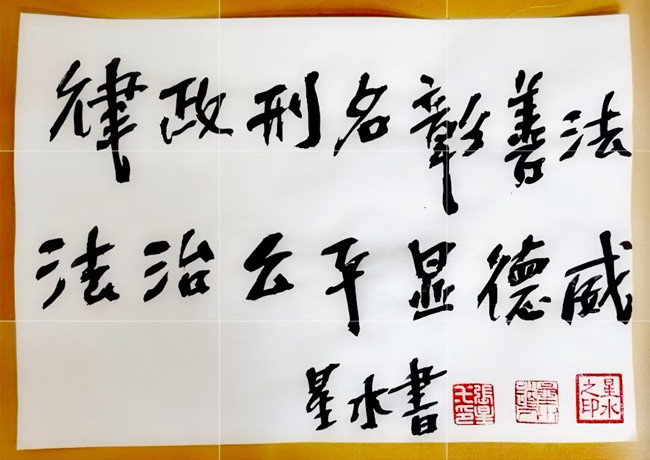 律政刑名彰善法
法治公平显德威
星水书
星水之印